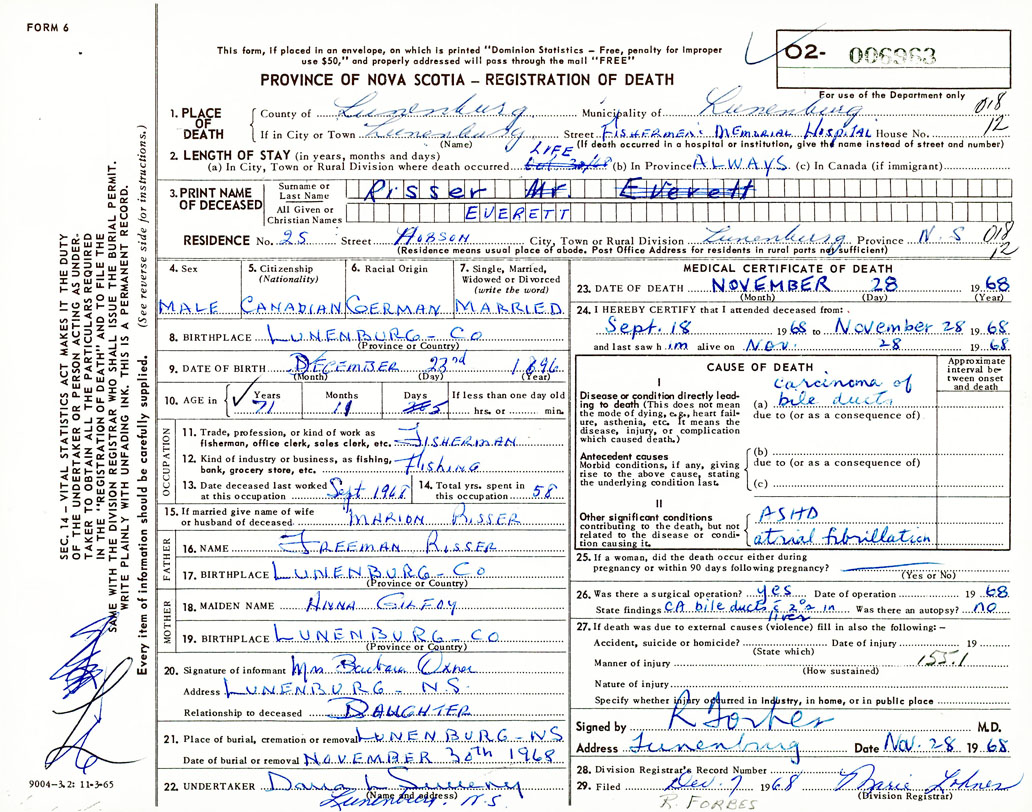 FORM 6
This form, if placed in an envelope, on which is printed "Dominion Statistics – Free, penalty for improper
use $50," and properly addressed will pass through the mail "FREE"
PROVINCE OF NOVA SCOTIA – REGISTRATION OF DEATH
O2- 006963
For use of the Department only
1. PLACE OF DEATH
County of Lunenburg Municipality of Lunenburg 018
If in City or Town Lunenburg Street FISHERMEN'S MEMORIAL HOSPITAL House No. 12
(Name) (If death occurred in a hospital or institution, give the name instead of street and number)
2. LENGTH OF STAY (in years, months and days) LIFE
(a) In City, Town or Rural Division where death occurred (b) In Province ALWAYS. (c) In Canada (if immigrant)
3. PRINT NAME OF DECEASED
Surname or Last Name Risser Mr. Everett
All Given or Christian Names EVERETT
RESIDENCE No. 25 Street HOBSON City, Town or Rural Division Lunenburg Province N.S 018
(Residence means usual place of abode. Post Office Address for residents in rural parts not sufficient) 12
4. Sex
MALE
5. Citizenship
(Nationality)
CANADIAN
6. Racial Origin
GERMAN
7. Single, Married,
Widowed or Divorced
(write the word)
MARRIED
8. BIRTHPLACE LUNENBURG-CO
(Province or Country)
9. DATE OF BIRTH DECEMBER 23rd 1896
(Month) (Day) (Year)
10. AGE in Years Months Days If less than one day old
71 11 hrs. or min.
OCCUPATION
11. Trade, profession, or kind of work as
fisherman, office clerk, sales clerk, etc. FISHERMAN
12. Kind of industry or business, as fishing,
bank, grocery store, etc. Fishing
13. Date deceased last worked
at this occupation Sept 1968
14. Total yrs. spent in
this occupation 58
15. If married give name of wife
or husband of deceased. MARION RISSER
FATHER
16. NAME FREEMAN RISSER
17. BIRTHPLACE LUNENBURG-CO
(Province or Country)
MOTHER
18. MAIDEN NAME ANNA GILFOY
19. BIRTHPLACE LUNENBURG-CO
(Province or Country)
20. Signature of informant Mrs. Barbara Oxner
Address LUNENBURG - N.S.
Relationship to deceased DAUGHTER
21. Place of burial, cremation or removal LUNENBURG-NS
Date of burial or removal NOVEMBER 30th 1968
22. UNDERTAKER Sweeney
(Name and address)
Lunenburg, N.S.
MEDICAL CERTIFICATE OF DEATH
23. DATE OF DEATH NOVEMBER 28 1968
(Month) (Day) (Year)
24. I HEREBY CERTIFY that I attended deceased from:
Sept. 18 1968 to November 28 1968
and last saw him alive on Nov. 28 1968
CAUSE OF DEATH
Approximate interval between onset and death
I
Disease or condition directly leading to death (This does not mean
the mode of dying, e.g., heart failure, asthenia, etc. It means the
disease, injury, or complication
which caused death.)
(a) carcinoma of
bile ducts
due to (or as a consequence of)
Antecedent causes
Morbid conditions, if any, giving
rise to the above cause, stating
the underlying condition last.
(b)
due to (or as a consequence of)
(c)
II
Other significant conditions
contributing to the death, but not
related to the disease or condition causing it.
ASHD
atrial fibrillation
25. If a woman, did the death occur either during
pregnancy or within 90 days following pregnancy?
(Yes or No)
26. Was there a surgical operation? yes Date of operation 1968
State findings CA bile ducts c 2°s in liver Was there an autopsy? no
27. If death was due to external causes (violence) fill in also the following: –
Accident, suicide or homicide? Date of injury 19
(State which)
Manner of injury 155.1
(How sustained)
Nature of injury
Specify whether injury occurred in Industry, in home, or in public place
Signed by R Forbes M.D.
Address Lunenburg Date Nov. 28 1968
28. Division Registrar's Record Number
29. Filed Dec. 7 1968 Marie
(Division Registrar)
R. FORBES
SEC. 14 – VITAL STATISTICS ACT MAKES IT THE DUTY
OF THE UNDERTAKER OR PERSON ACTING AS UNDER-
TAKER TO OBTAIN ALL THE PARTICULARS REQUIRED
IN THE "REGISTRATION OF DEATH" AND TO FILE THE
SAME WITH THE DIVISION REGISTRAR WHO SHALL ISSUE THE BURIAL PERMIT.
WRITE PLAINLY WITH UNFADING INK. THIS IS A PERMANENT RECORD.
Every item of information should be carefully supplied. (See reverse side for instructions.)
9004-3.2: 11-3-65